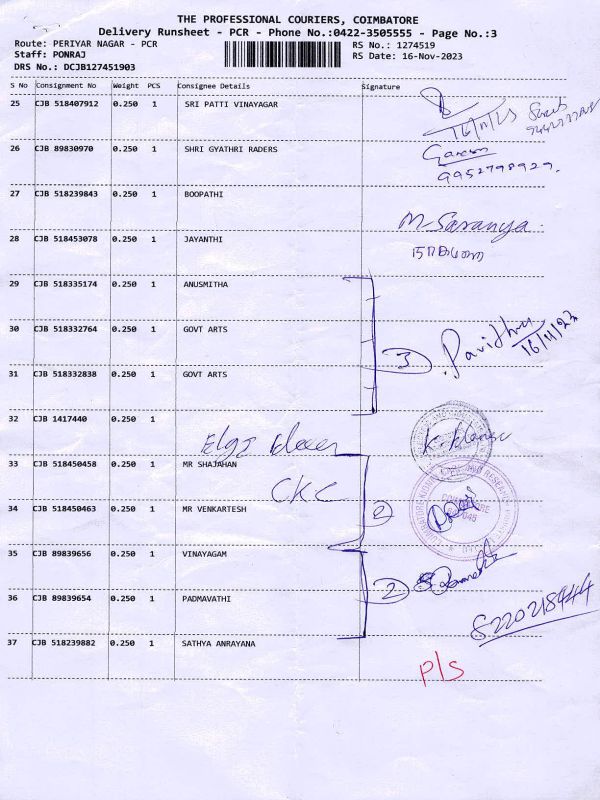 THE PROFESSIONAL COURIERS, COIMBATORE
Delivery Runsheet - PCR - Phone No.:0422-3505555 - Page No.:3
Route: PERIYAR NAGAR - PCR
RS No.: 1274519
Staff: PONRAJ
RS Date: 16-Nov-2023
DRS No.: DCJB127451903
S No Consignment No Weight PCS Consignee Details Signature
25 CJB 518407912 0.250 1 SRI PATTI VINAYAGAR
16/11/23
26 CJB 89830970 0.250 1 SHRI GYATHRI RADERS
9952798929.
27 CJB 518239843 0.250 1 BOOPATHI
M-Saranya.
28 CJB 518453078 0.250 1 JAYANTHI
29 CJB 518335174 0.250 1 ANUSMITHA
30 CJB 518332764 0.250 1 GOVT ARTS
3 Pavithra 16/11/23
31 CJB 518332838 0.250 1 GOVT ARTS
32 CJB 1417440 0.250 1
33 CJB 518450458 0.250 1 MR SHAJAHAN
CKC
34 CJB 518450463 0.250 1 MR VENKARTESH
2
35 CJB 89839656 0.250 1 VINAYAGAM
36 CJB 89839654 0.250 1 PADMAVATHI
2
8220218944
37 CJB 518239882 0.250 1 SATHYA ANRAYANA
P/S